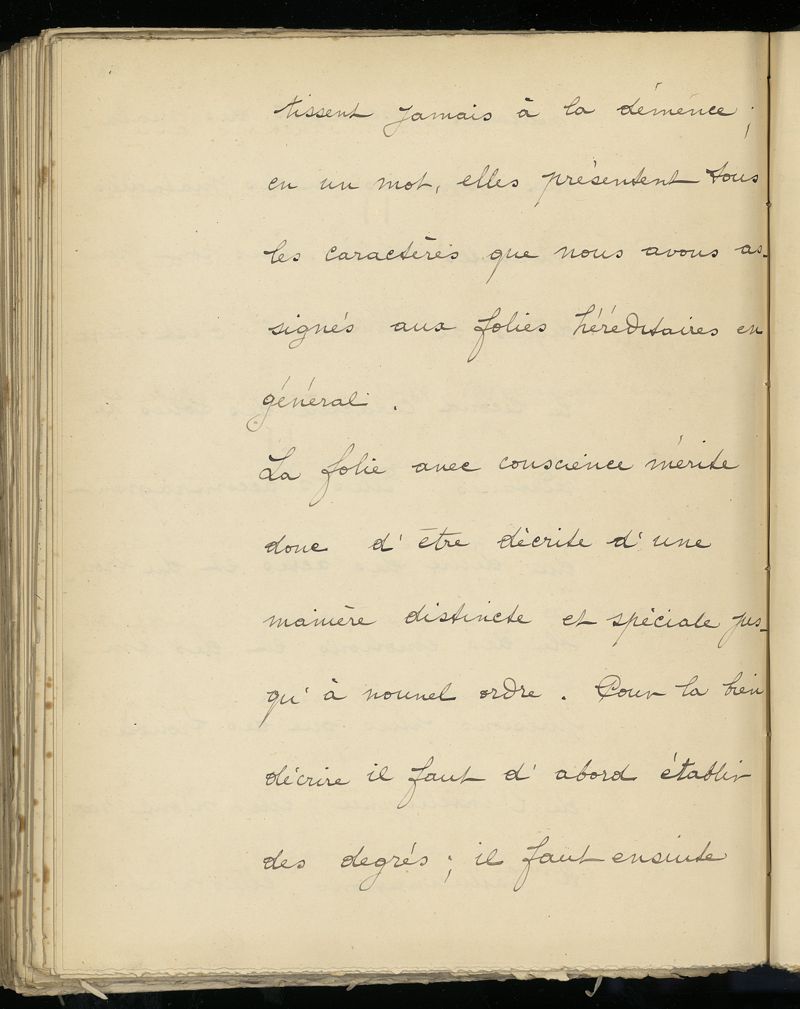 tissent jamais à la démence ;
en un mot, elles présentent tous
les caractères que nous avons as-
signés aux folies héréditaires en
général .
La folie avec conscience mérite
donc d' être décrite d' une
manière distincte et spéciale jus-
qu' à nouvel ordre . Pour la bien
décrire il faut d' abord établir
des degrés ; il faut ensuite